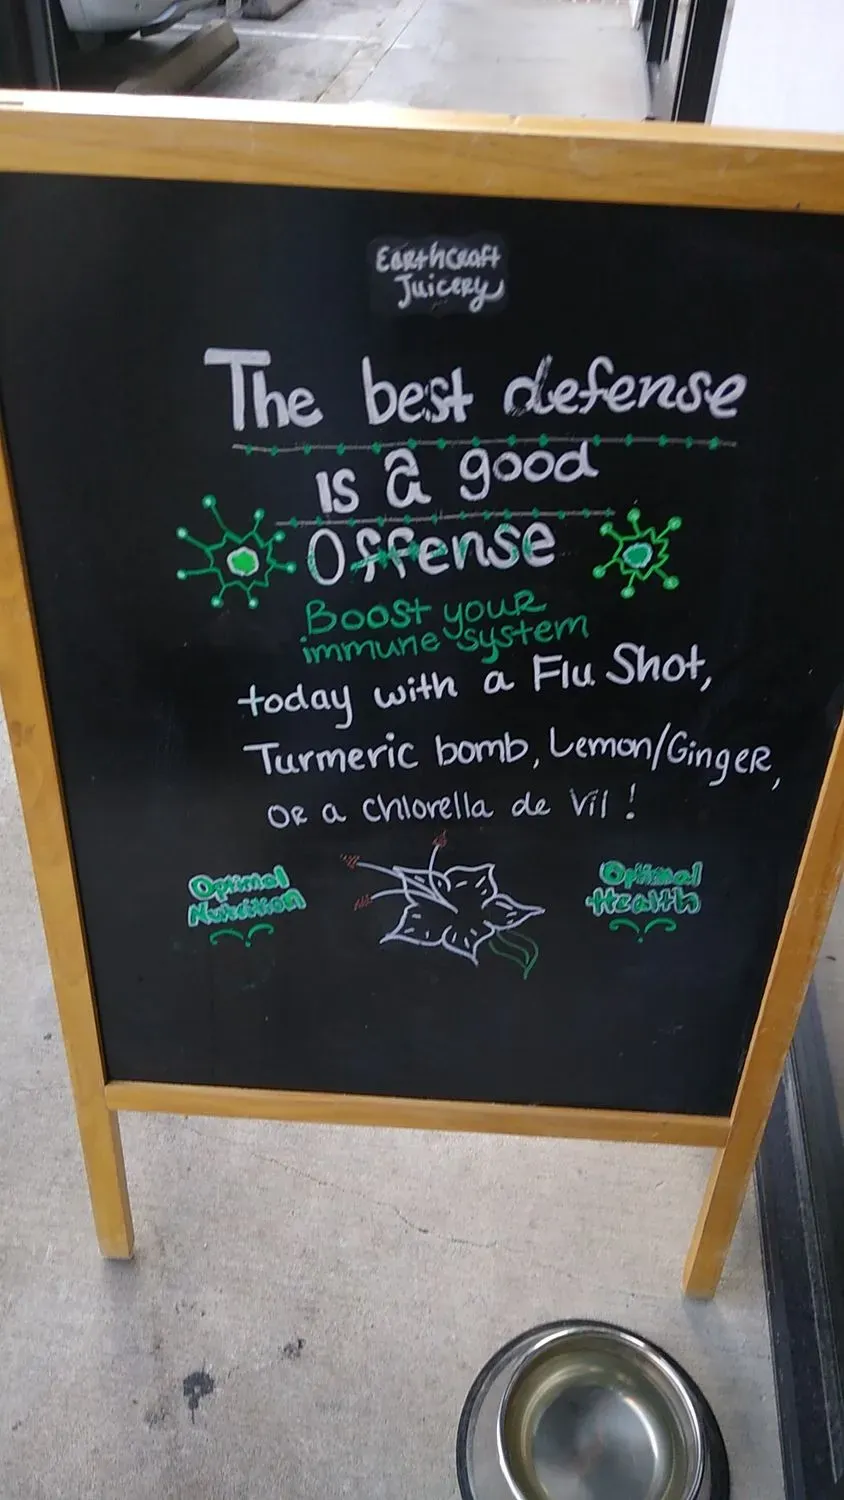 EarthCraft
Juicery
The best defense
is a good
Offense
Boost your
immune system
today with a Flu Shot,
Turmeric bomb, Lemon/Ginger,
OR a Chlorella de Vil!
Optimal
Nutrition
Optimal
Health